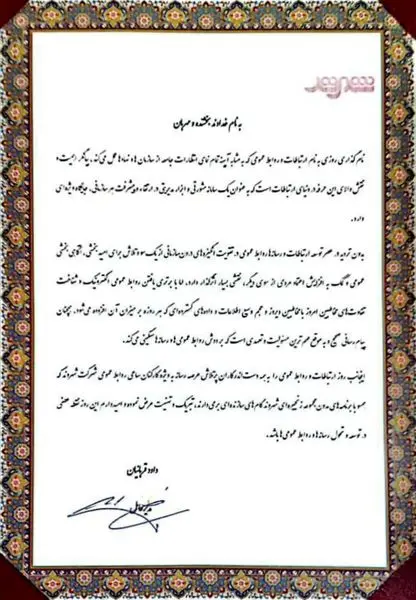 شهروند
به نام خداوند بخشنده و مهربان
نام گذاری روزی به نام ارتباطات و روابط عمومی که به مثابه آیینه تمام نمای انتظارات جامعه از سازمان ها و نهادها عمل می کند، بیانگر اهمیت و
نقش والای این حرفه در دنیای ارتباطات است که به عنوان یک سامانه مشورتی و ابزار مدیریتی در ارتقاء و پیشرفت هر سازمانی، جایگاه ویژه ای
دارد.
بدون تردید در عصر توسعه ارتباطات و رسانه ها، روابط عمومی در تقویت انگیزه های درون سازمانی از یک سو و تلاش برای امید بخشی، آگاهی بخشی
عمومی و کمک به افزایش اعتماد مردمی از سوی دیگر، نقشی بسیار اثرگذار دارد. اما با برتری یافتن روابط عمومی الکترونیک و شناخت
تفاوت های مخاطبین امروز با مخاطبین دیروز و حجم وسیع اطلاعات و داده های گسترده ای که هر روزه بر میزان آن افزوده می شود. همچنان
پیام رسانی صحیح و به موقع مهم ترین مسئولیت و تعهدی است که بر دوش روابط عمومی ها و رسانه ها سنگینی می کند.
اینجانب روز ارتباطات و روابط عمومی را به همه دست اندرکاران پرتلاش عرصه رسانه به ویژه کارکنان ساعی روابط عمومی شرکت شهروند که
همسو با برنامه های مدون مجموعه زنجیره ای شهروند گام های سازنده ای برمی دارند، تبریک و تهنیت عرض نموده و امیدوارم این روز نقطه عطفی
در توسعه و تحول رسانه ها و روابط عمومی ها باشد.
داود قربانیان
مدیرعامل